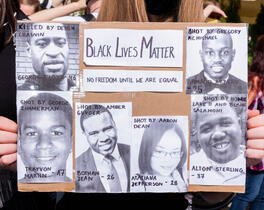 KILLED BY DEREK
CHAUVIN
GEORGE
BLACK LIVES MATTER
NO FREEDOM UNTIL WE ARE EQUAL
SHOT BY GREGORY
MCMICHAEL
SHOT BY GEORGE
ZIMMERMAN
TRAYVON
MARTIN 17
SHOT BY AMBER
GUYGER
BOTHAM
JEAN - 26
SHOT BY AARON
DEAN
ATATIANA
JEFFERSON - 28
SHOT BY HOWIE
LAKE II AND BLANE
SALAMONI
ALTON
STERLING
- 37